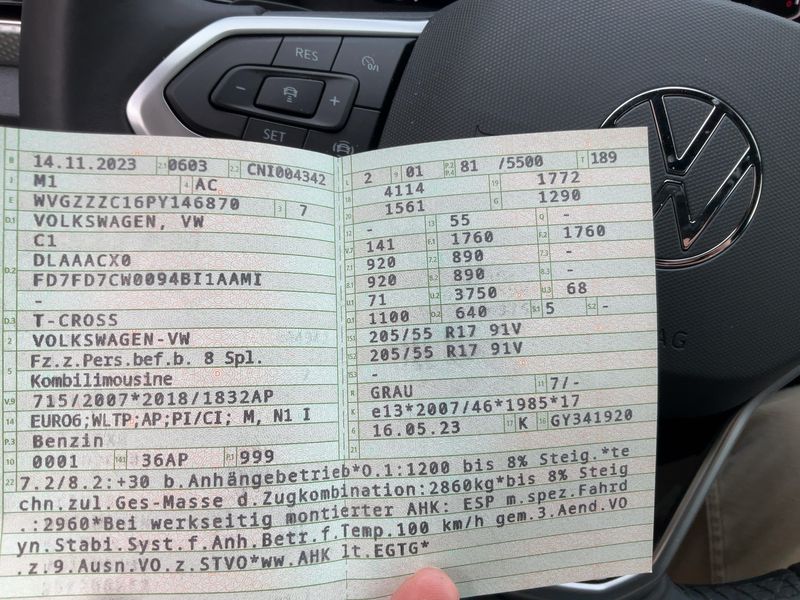 RES
SET
B 14.11.2023 2.1 0603 2.2 CNI004342
J M1 4 AC
E WVGZZZC16PY146870 3 7
D.1 VOLKSWAGEN, VW
C1
D.2 DLAAACX0
FD7FD7CW0094BI1AAMI
-
D.3 T-CROSS
2 VOLKSWAGEN-VW
5 Fz.z.Pers.bef.b. 8 Spl.
Kombilimousine
V.9 715/2007*2018/1832AP
14 EURO6;WLTP;AP;PI/CI; M, N1 I
P.3 Benzin
10 0001 14.1 36AP P.1 999
L 2 9 01 P.2 P.4 81 /5500 T 189
18 4114 19 1772
20 1561 G 1290
12 - 13 55 Q -
V.7 141 F.1 1760 F.2 1760
7.1 920 7.2 890 7.3 -
8.1 920 8.2 890 8.3 -
U.1 71 U.2 3750 U.3 68
O.1 1100 O.2 640 S.1 5 S.2 -
15.1 205/55 R17 91V
15.2 205/55 R17 91V
15.3 -
R GRAU 11 7/-
K e13*2007/46*1985*17
6 16.05.23 17 K 16 GY341920
21
22 7.2/8.2:+30 b.Anhängebetrieb*O.1:1200 bis 8% Steig.*te
chn.zul.Ges-Masse d.Zugkombination:2860kg*bis 8% Steig
.:2960*Bei werkseitig montierter AHK: ESP m.spez.Fahrd
yn.Stabi.Syst.f.Anh.Betr.f.Temp.100 km/h gem.3.Aend.VO
.z.9.Ausn.VO.z.STVO*ww.AHK lt.EGTG*
AG